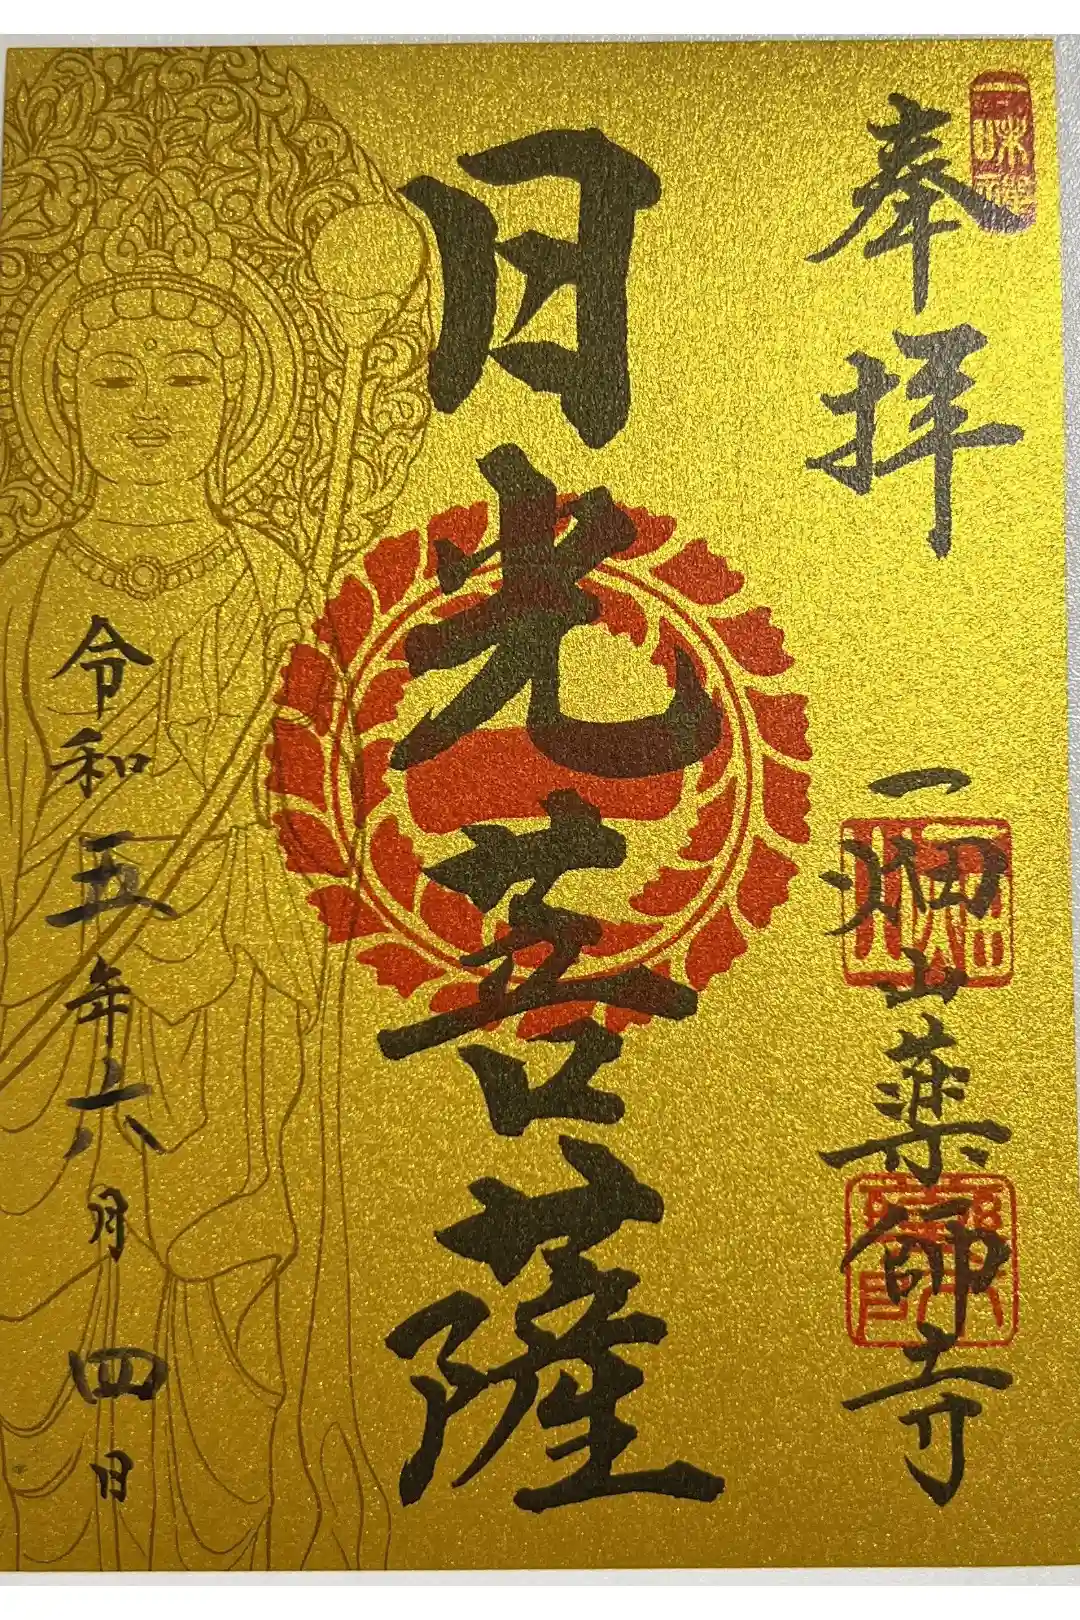 奉拝
日光菩薩
一畑山薬師寺
令和五年六月四日